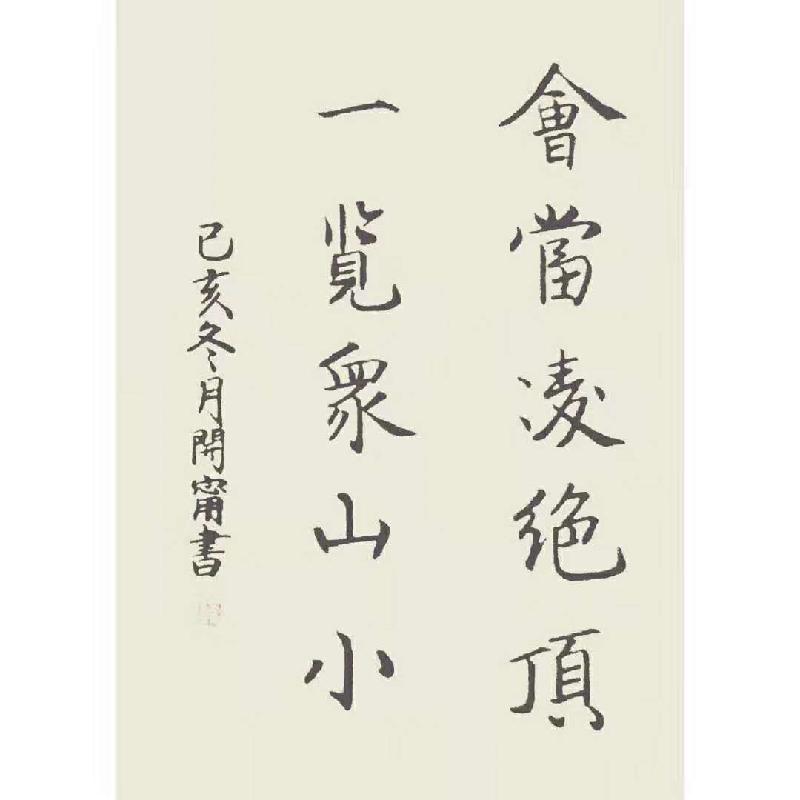 會當凌絕頂
一覧衆山小
己亥冬月開甯書